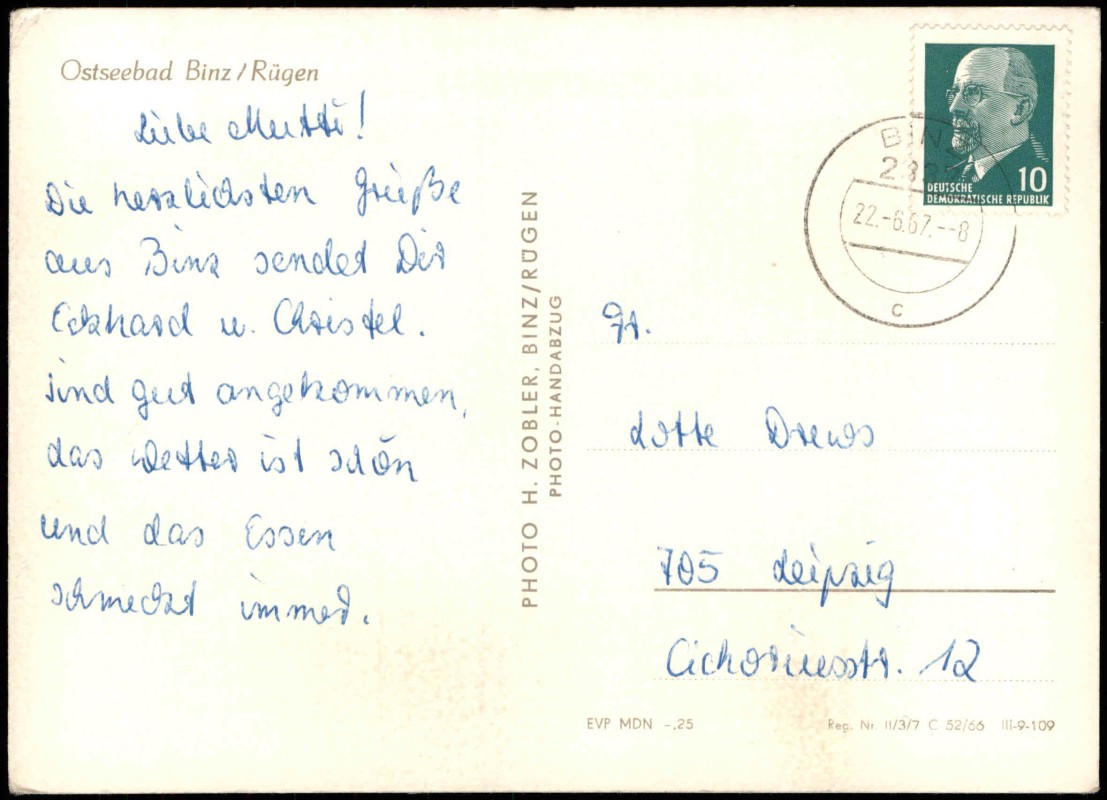 Ostseebad Binz / Rügen
Liebe Mutti!
Die herzlichsten Grüße
aus Binz sendet Dir
Eckhard u. Christel.
Sind gut angekommen,
das Wetter ist schön
und das Essen
schmeckt immer.
PHOTO H. ZOBLER, BINZ/RÜGEN
PHOTO-HANDABZUG
DEUTSCHE
DEMOKRATISCHE REPUBLIK
10
BINZ
22.-6.67.--8
c
Fr.
Lotte Drews
705 Leipzig
Cichoriusstr. 12
EVP MDN -,25
Reg. Nr. II/3/7 C 52/66 III-9-109